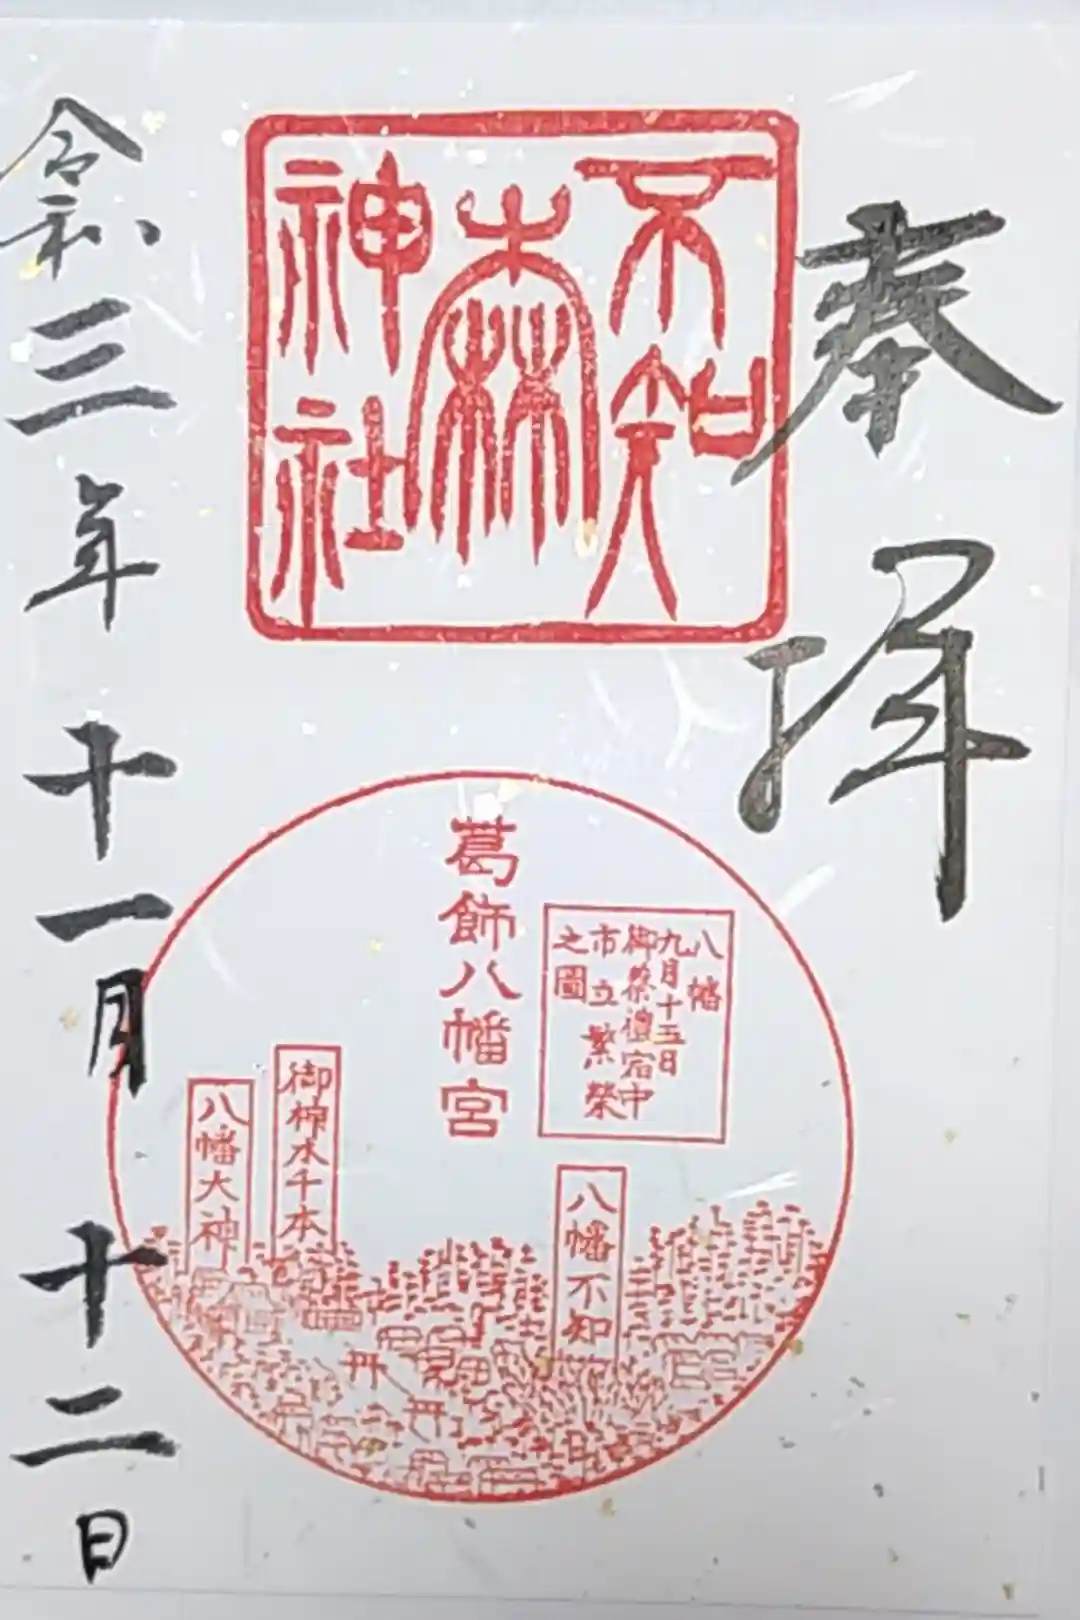 奉拝
不知
森
神社
葛飾八幡宮
八幡
九月十五日
御祭禮宿中
市立繁榮
之圖
八幡不知
御柞木千本
八幡大神
令和三年十一月十二日